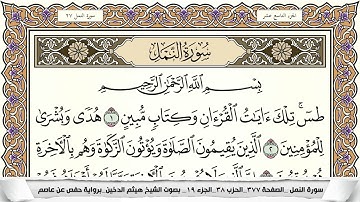 الجزء التاسع عشر
سورة النمل ٢٧
سُورَةُ النَّمْلِ
بِسْمِ اللَّهِ الرَّحْمَٰنِ الرَّحِيمِ
طسٓ ۚ تِلْكَ ءَايَٰتُ ٱلْقُرْءَانِ وَكِتَابٍ مُّبِينٍ ١ هُدًى وَبُشْرَىٰ
لِلْمُؤْمِنِينَ ٢ ٱلَّذِينَ يُقِيمُونَ ٱلصَّلَوٰةَ وَيُؤْتُونَ ٱلزَّكَوٰةَ وَهُم بِٱلْءَاخِرَةِ
سورة النمل _الصفحة ٣٧٧_الحزب ٣٨_الجزء ١٩_ بصوت الشيخ هيثم الدخين_برواية حفص عن عاصم